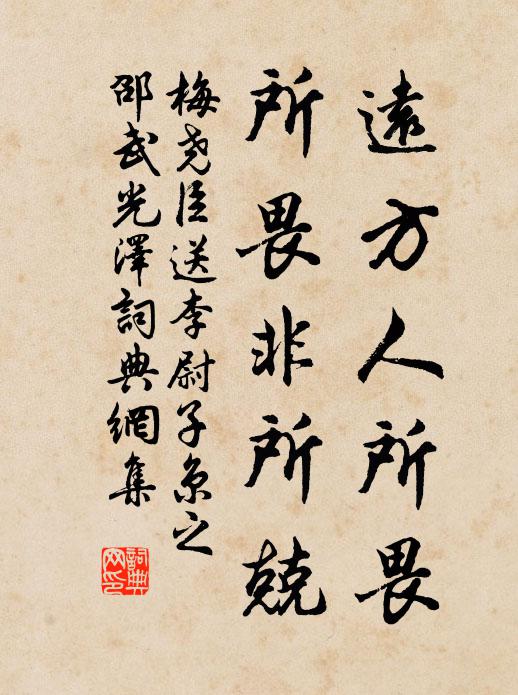 遠方人所畏
所畏非所兢
梅堯臣送李尉子京之
邵武光澤詞典網集
詞典
网印